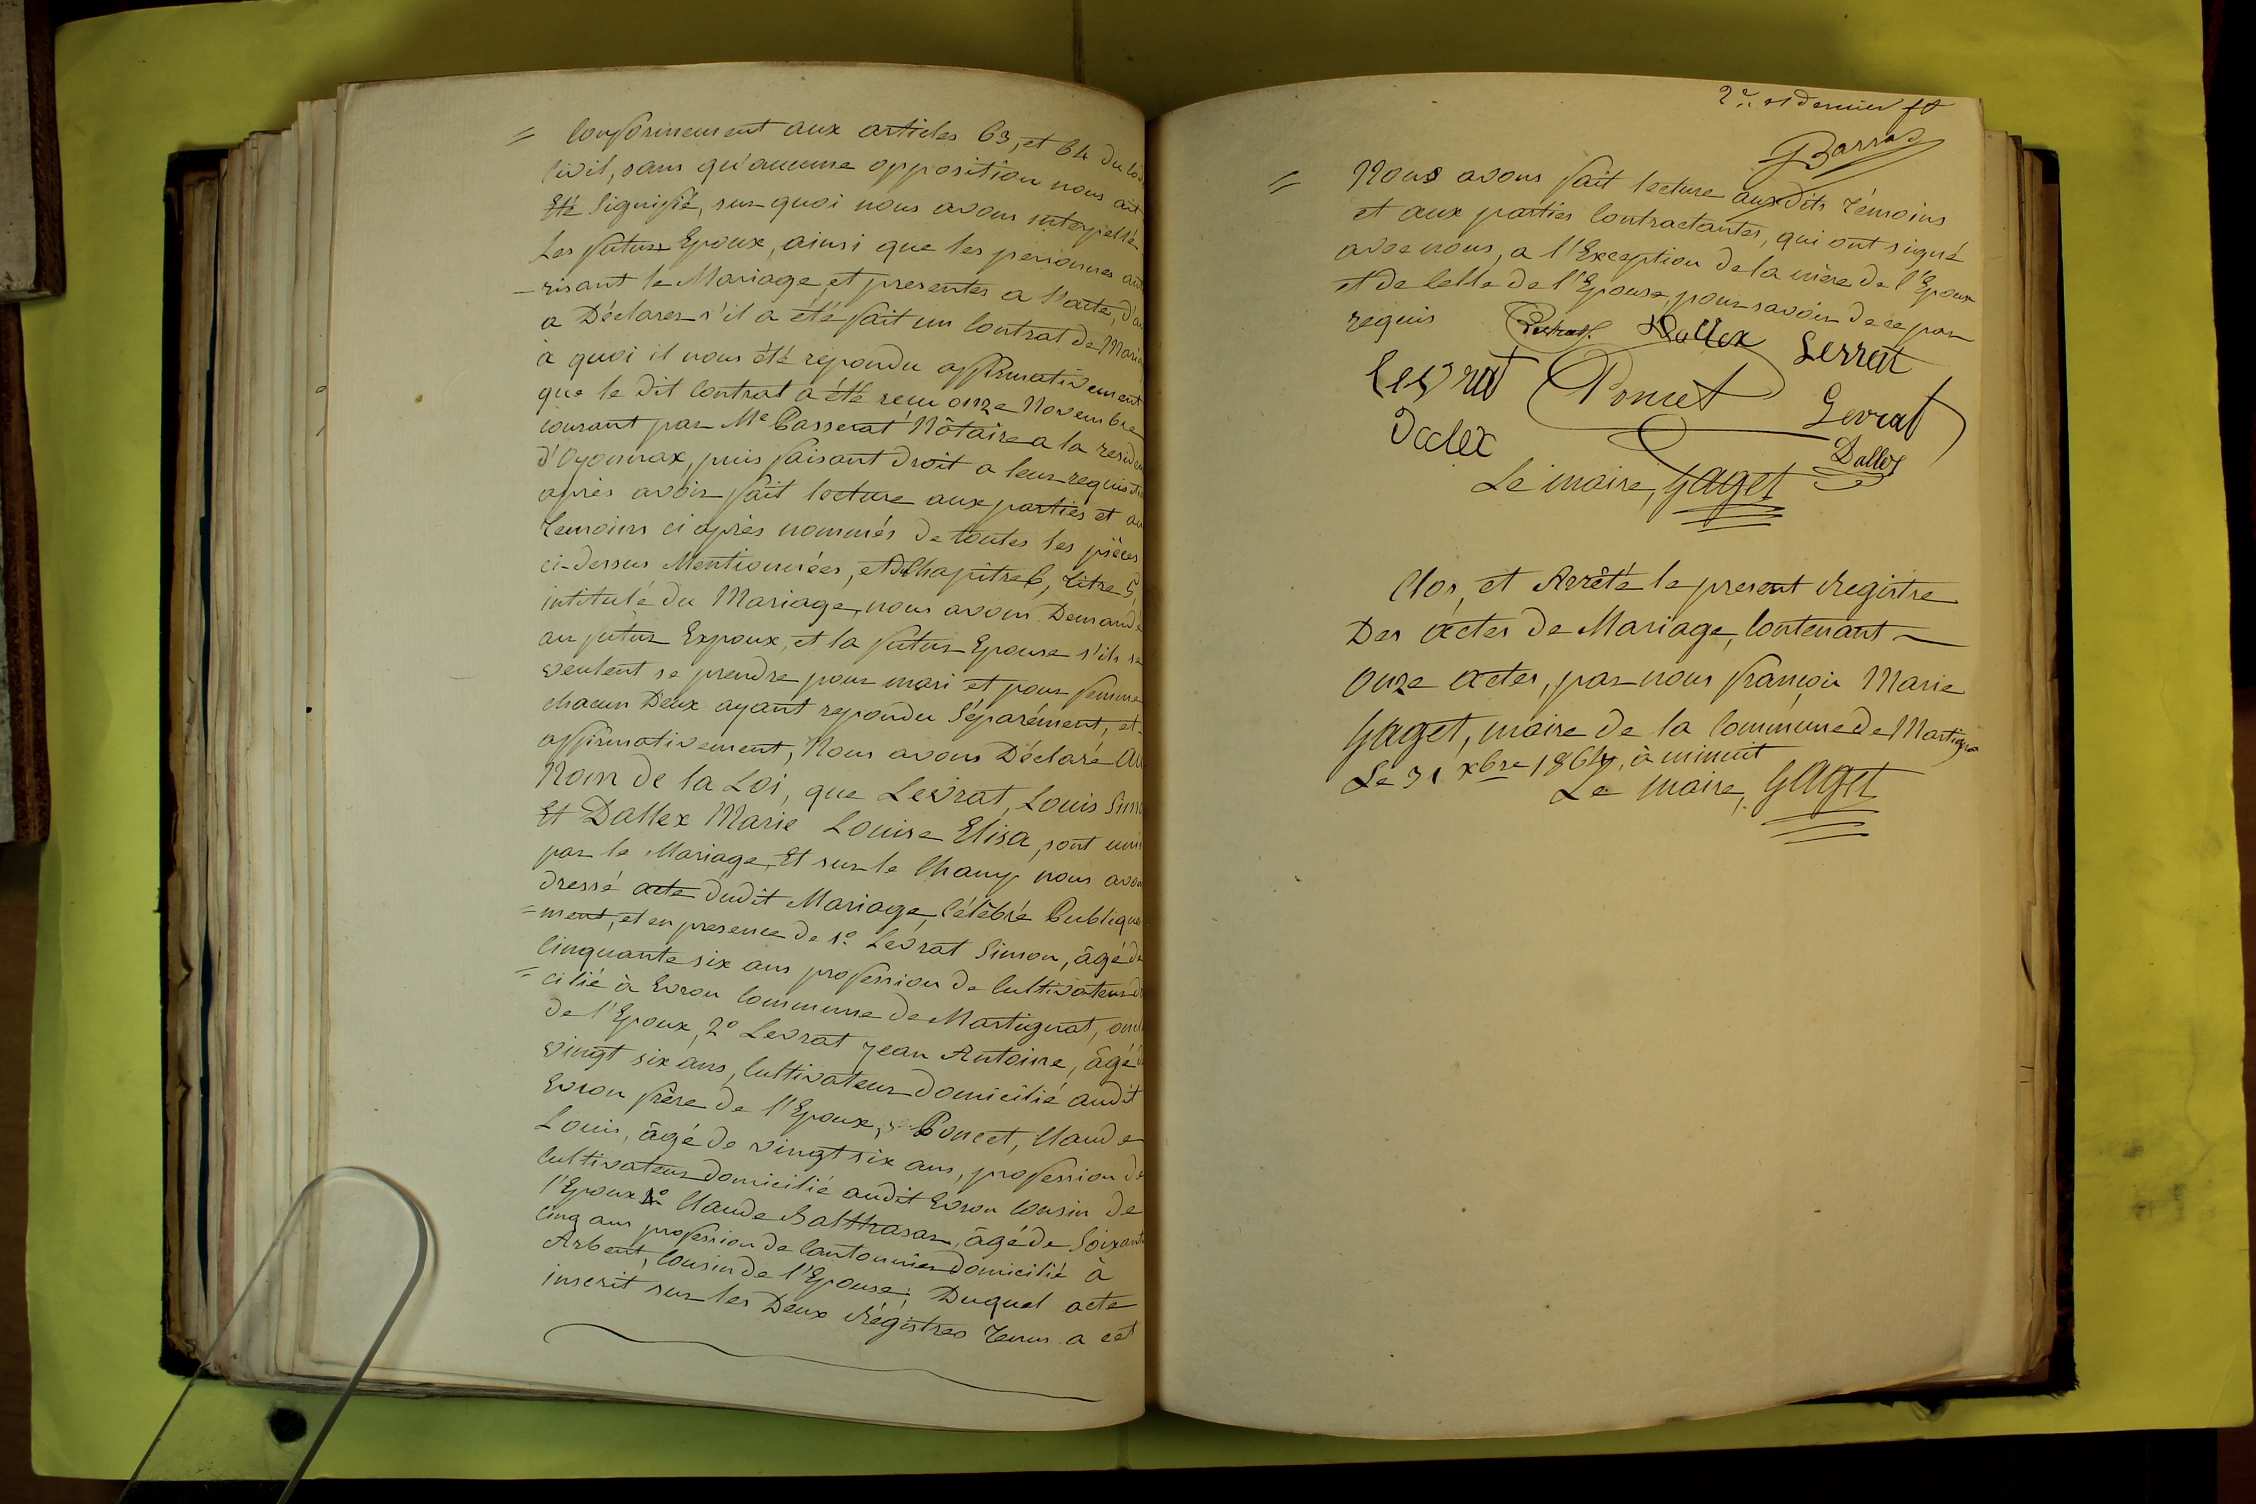 = Conformement aux articles 63, et 64 du Co
Civil, sans qu'aucune opposition nous ait
Eté Signifié, sur quoi nous avons interpellé
Les futurs Epoux, ainsi que les personnes au
-risant le Mariage et presentes a l'acte, d'a
a Déclarer s'il a été fait un Contrat de Maria
à quoi il nous été repondu affirmativement
que le dit Contrat a été recu onze Novembre
courant par Me Passerat Nôtaire a la residen
d'Oyonnax, puis faisant droit a leur requisiti
après avoir fait lecture aux parties et au
temoins ci après nommés de toutes les pièces
ci-dessus Mentionnées, et du Chapitre 6, titre 5,
intitulé du Mariage, nous avons Demandé
au futur Expoux, et la futur Epouse s'ils se
veulent se prendre pour mari et pour femme
chacun Deux ayant repondu Séparément, et
affirmativement, Nous avons Déclaré au
Nom de la Loi, que Levrat, Louis Simo
Et Dallex Marie Louise Elisa, sont uni
par le Mariage, Et sur le Champ nous avon
dressé acte dudit Mariage, Célébré Publique
=ment, et en presence de 1º Levrat Simon, âgé de
Cinquante six ans profession de Cultivateur d
=cilié à Evron Commune de Martignat, oncl
de l'Epoux, 2º Levrat Jean Antoine, âgé d
vingt six ans, Cultivateur domicilié audit
Evron frère de l'Epoux, Poncet, Claude
Louis, âgé de vingt six ans, profession de
Cultivateur domicilié audit Evron cousin de
l'Epoux 4º Claude Balthasar, âgé de Soixant
Cinq ans profession de Cantonnier domicilié à
Arbent, Cousin de l'Epouse, Duquel acte
inscrit sur les Deux Régistres tenus a cet
2e et dernier fo
Barras
= Nous avons fait lecture auxdits témoins
et aux parties Contractantes, qui ont signé
avec nous, a l'Exception de la mère de l'Epoux
et de Celle de l'Epouse, pour savoir de ce par
requis
Dallex Levrat
Levrat Poncet Levrat
Dallex Dallex
Le maire, Gaget
Clos, et Arrêté le present Registre
Des actes de Mariage, Contenant
Onze actes, par nous françois Marie
Gaget, maire de la Commune de Martignat
Le 31 xbre 1864, à minuit
Le maire, Gaget